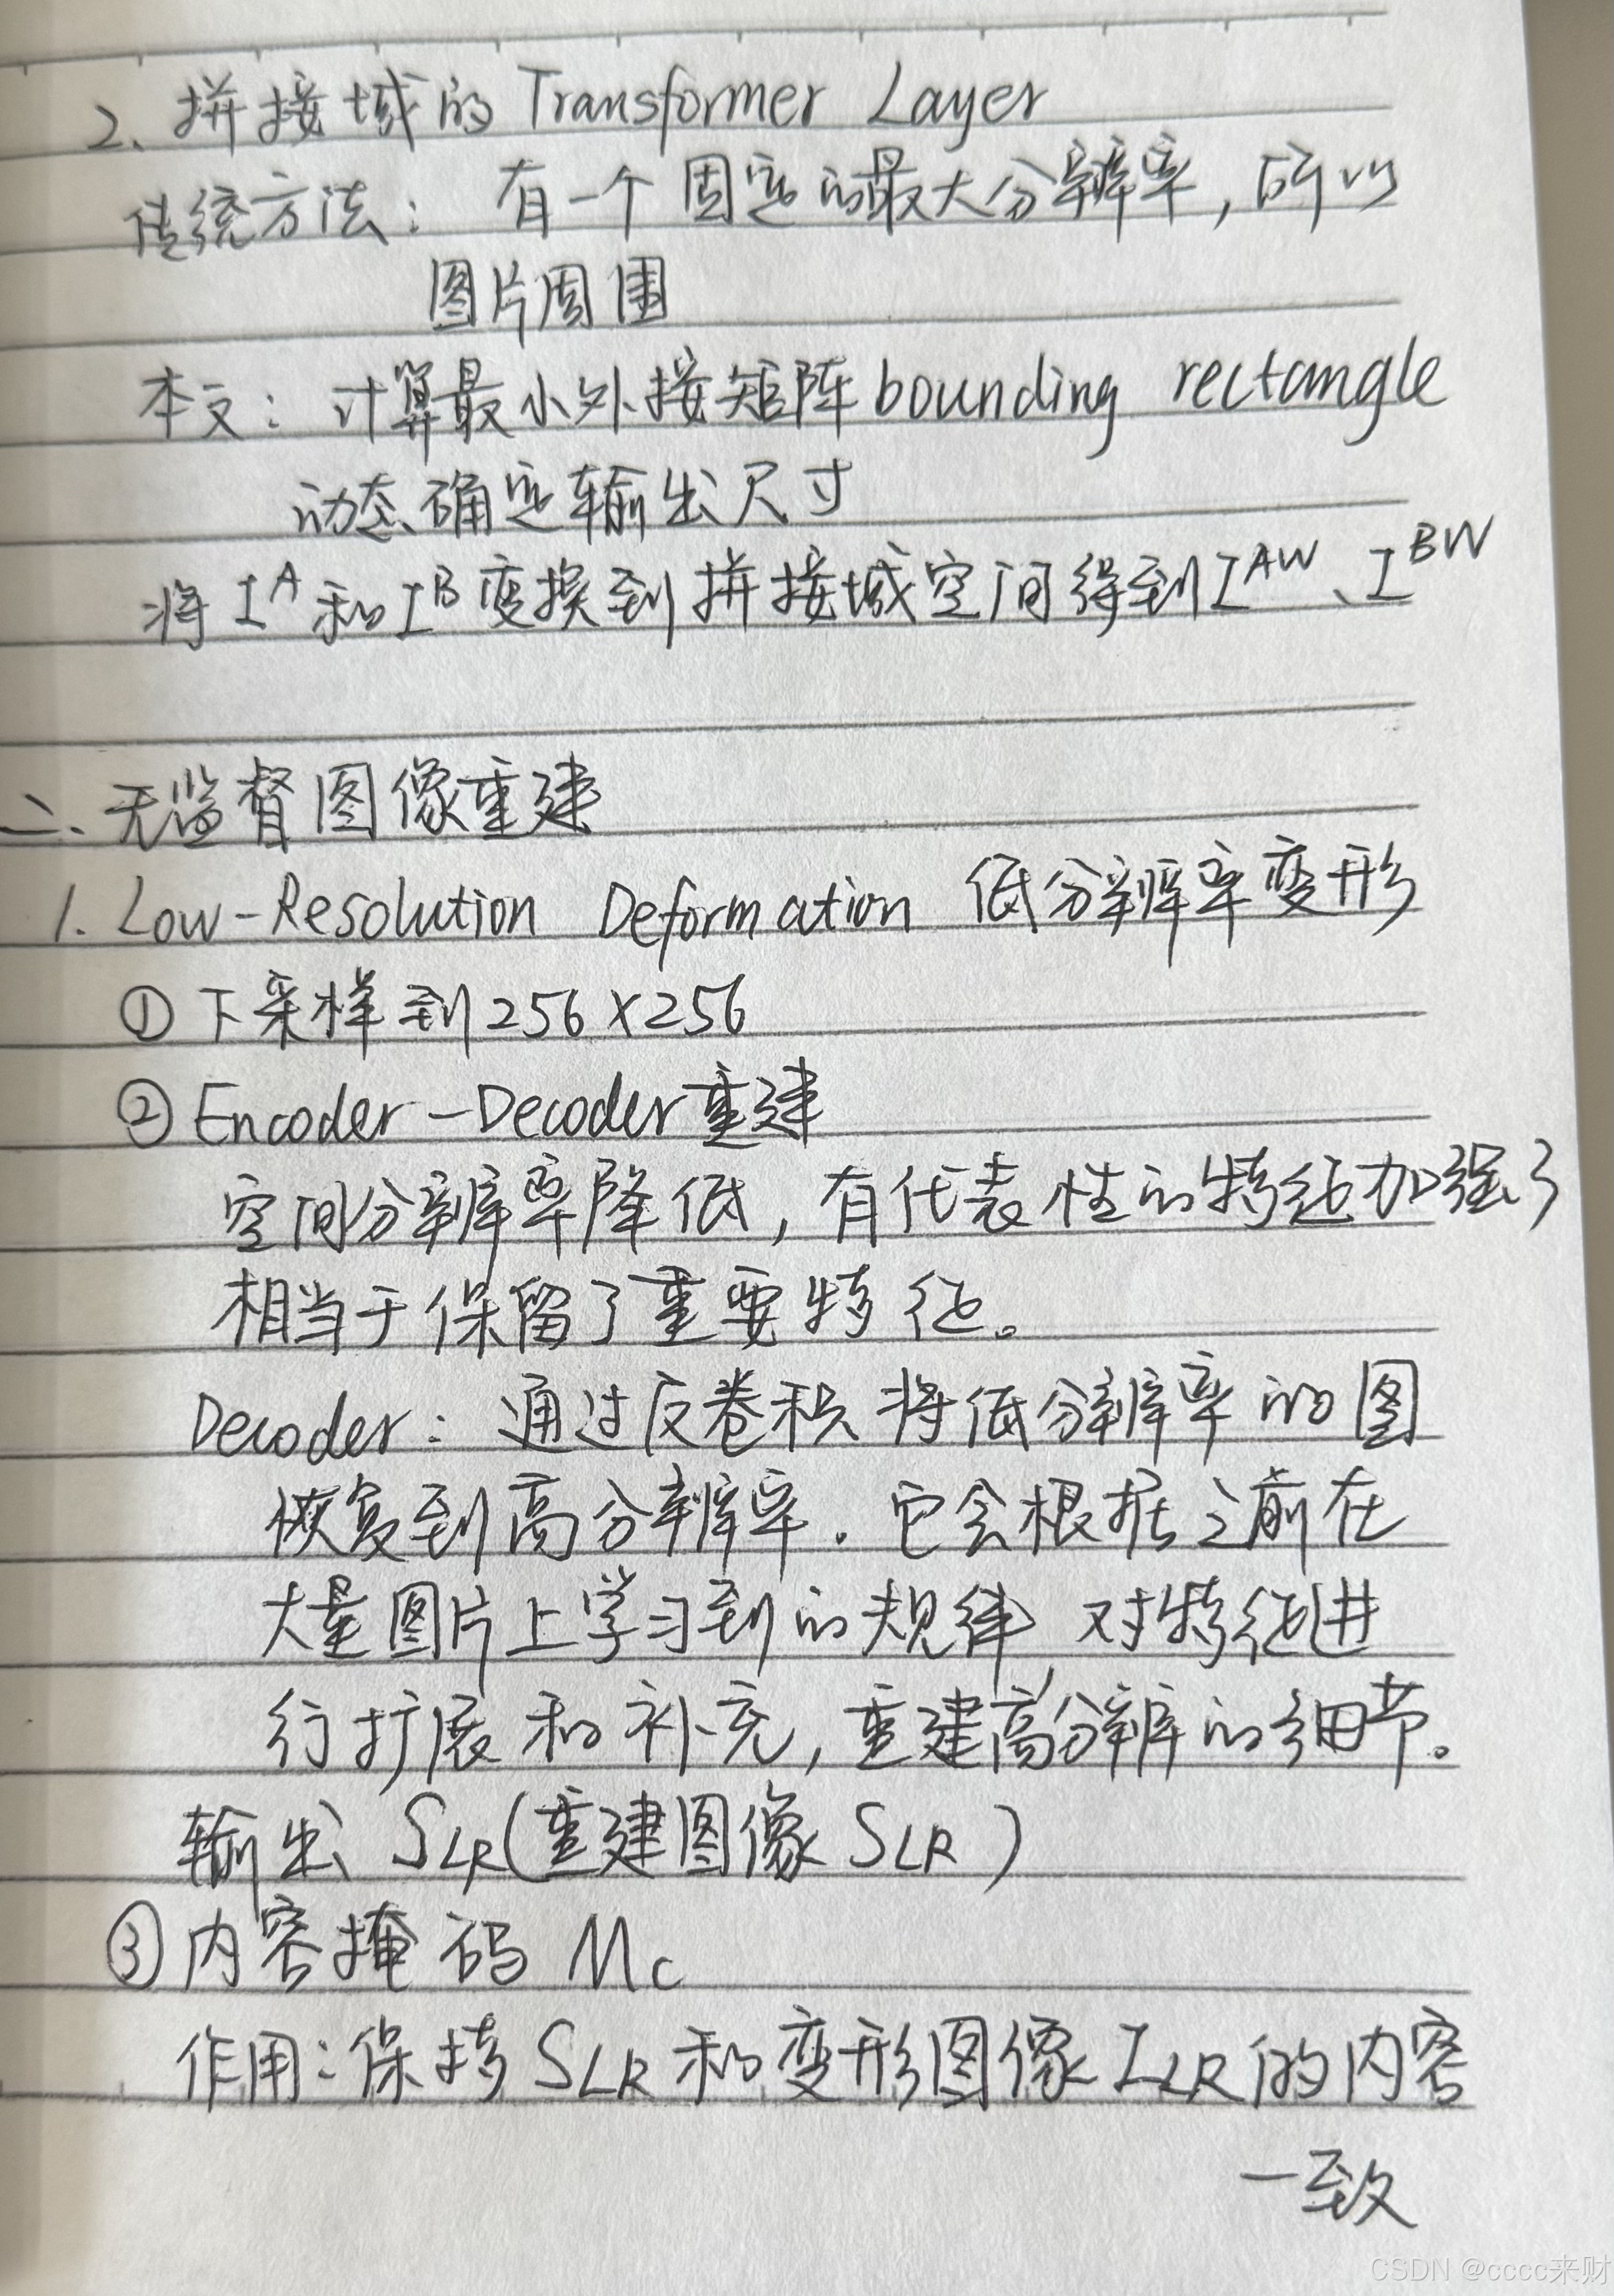 2、拼接域的 Transformer Layer
传统方法：有一个固定的最大分辨率，所以
图片周围
本文：计算最小外接矩阵 bounding rectangle
动态确定输出尺寸
将 I^A 和 I^B 变换到拼接域空间得到 I^AW、I^BW
二、无监督图像重建
1. Low-Resolution Deformation 低分辨率变形
① 下采样到 256×256
② Encoder-Decoder 重建
空间分辨率降低，有代表性的特征加强了
相当于保留了重要特征。
Decoder：通过反卷积将低分辨率的图
恢复到高分辨率．它会根据之前在
大量图片上学习到的规律，对特征进
行扩展和补充，重建高分辨的细节。
输出 S_LR（重建图像 S_LR）
③ 内容掩码 Mc
作用：保持 S_LR 和变形图像 I_LR 的内容
一致
CSDN @cccc来财